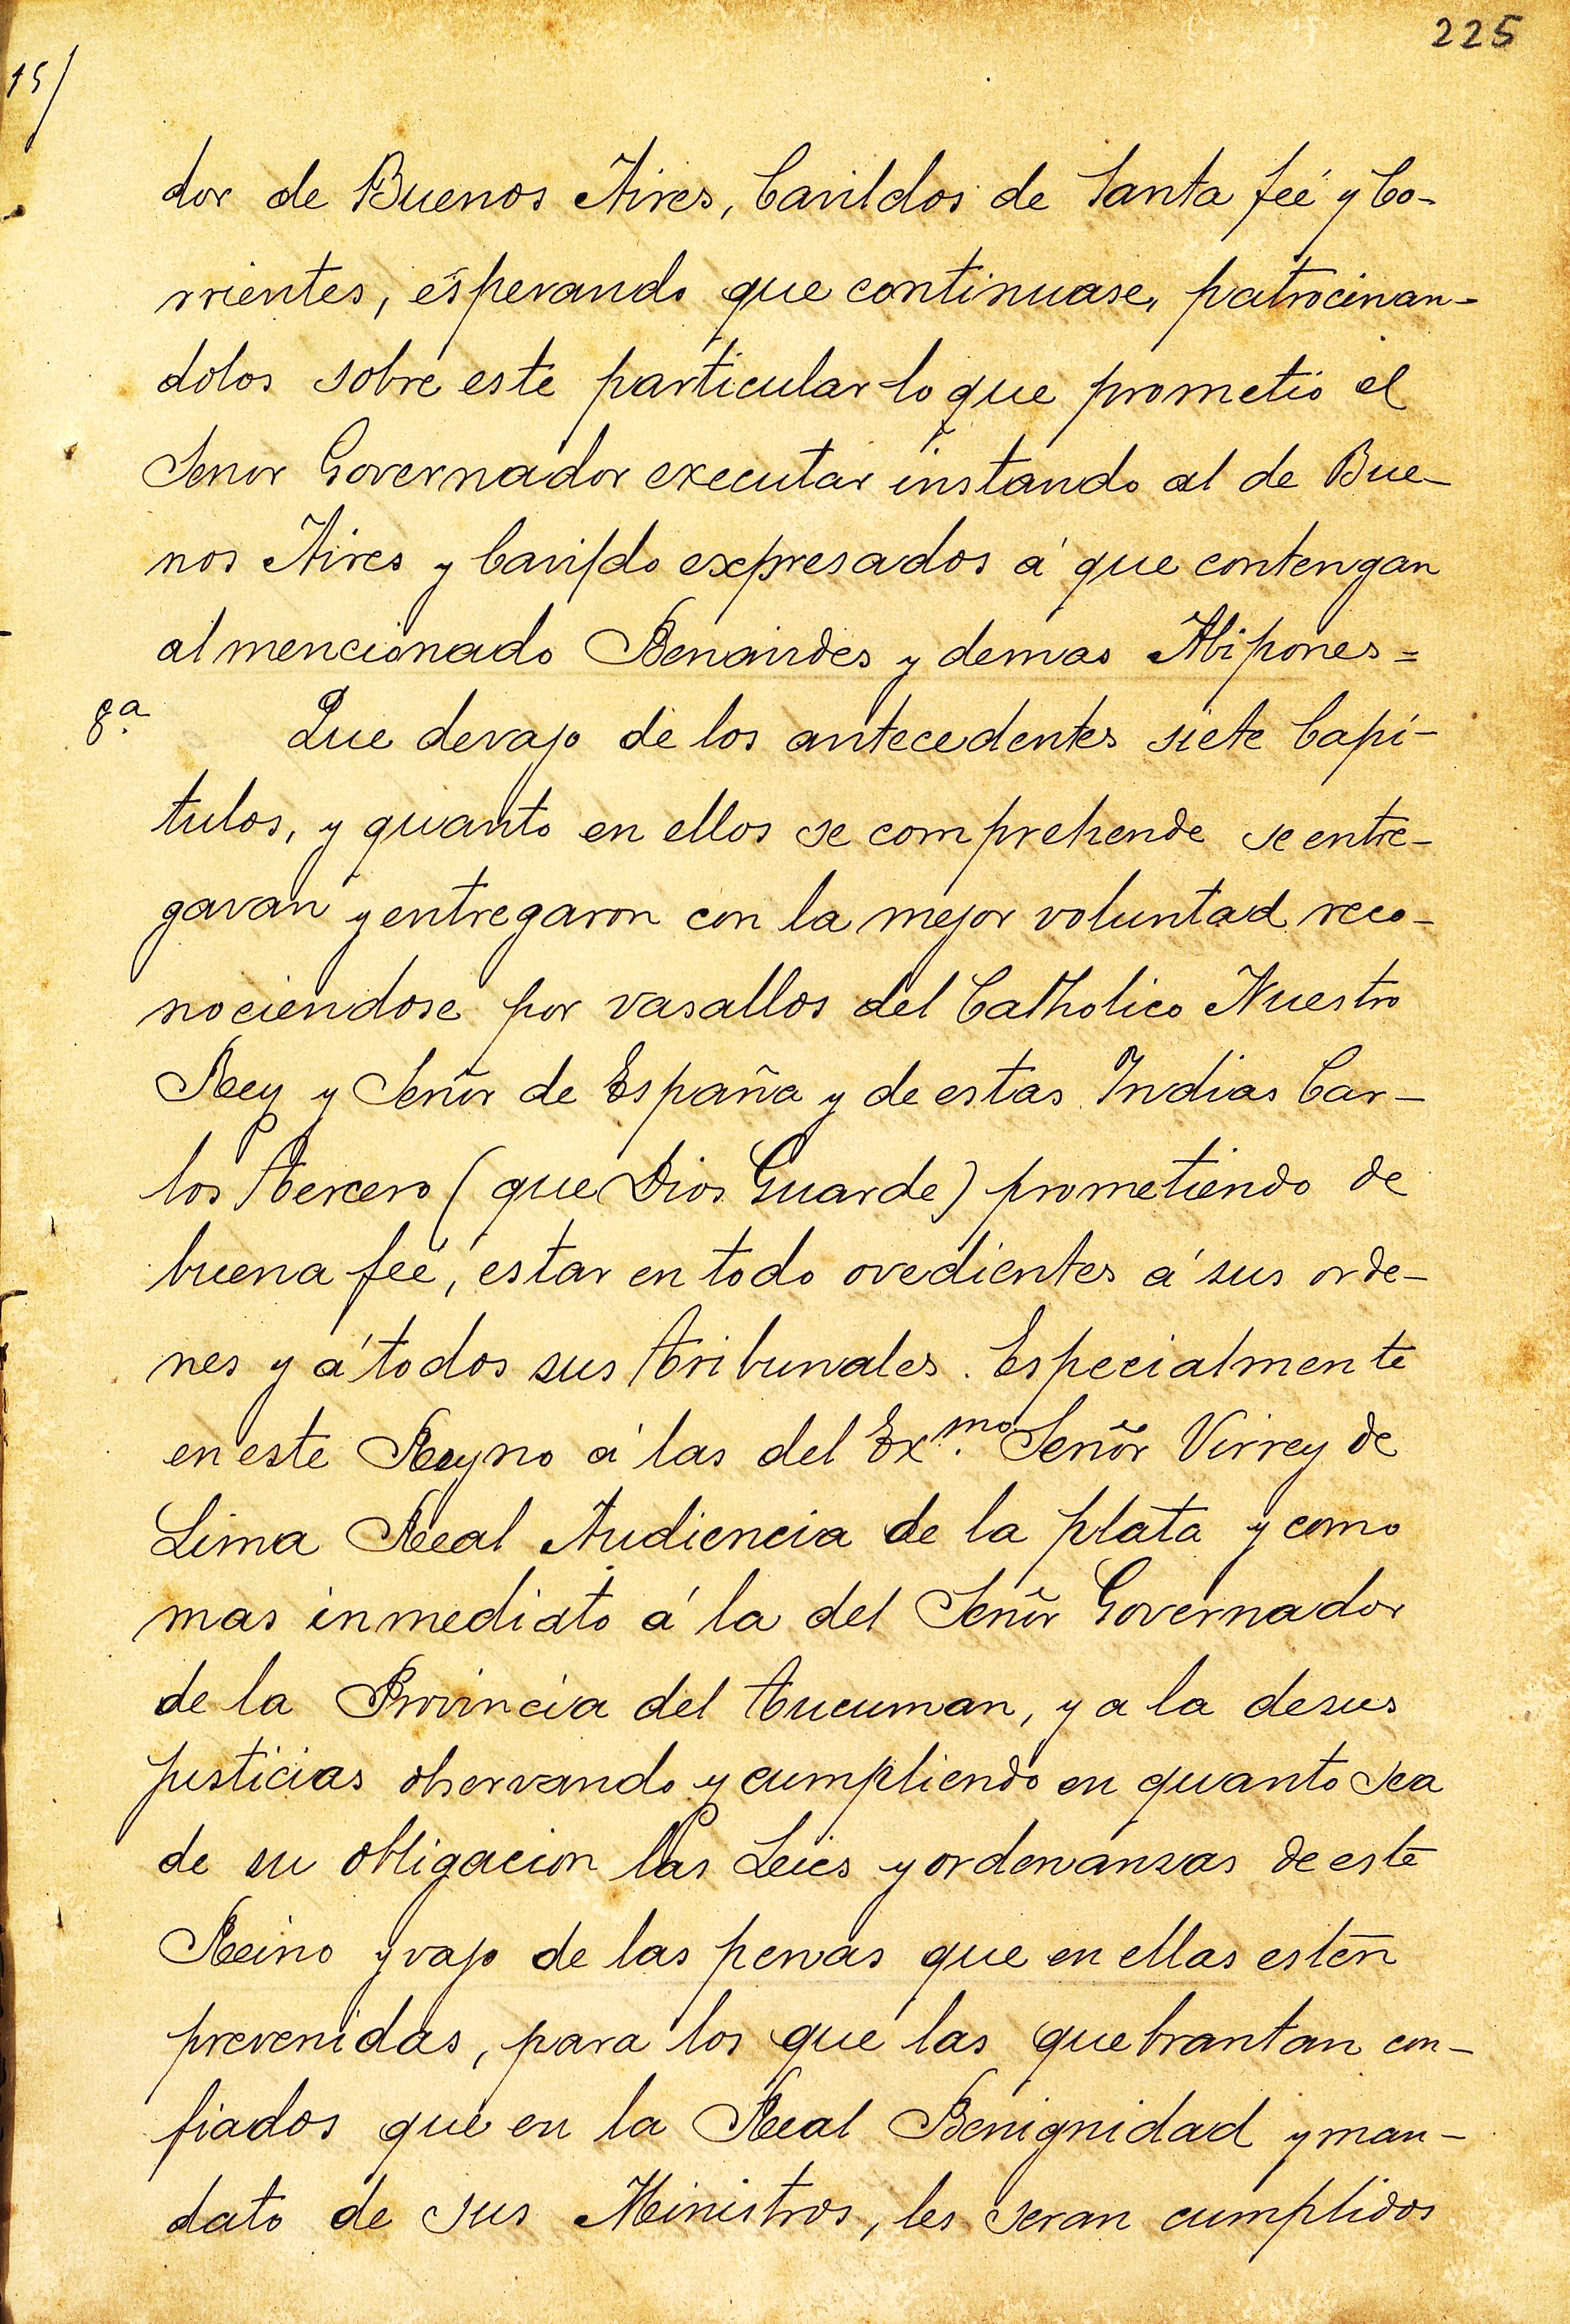 225
15/
dor de Buenos Aires, Cavildos de Santa feé y Co-
rrientes, esperando que continuase, patrocinan-
dolos sobre este particular lo que prometió el
Senor Governador executar instando al de Bue-
nos Aires y Cavildo expresados á que contengan
al mencionado Benavides y demas Abipones =
8.ª Que devajo de los antecedentes siete Capi-
tulos, y quanto en ellos se comprehende se entre-
gavan y entregaron con la mejor voluntad reco-
nociendose por vasallos del Catholico Nuestro
Rey y Señor de España y de estas Indias Car-
los tercero (que Dios Guarde) prometiendo de
buena feé, estar en todo ovedientes á sus orde-
nes y á todos sus tribunales. Especialmente
en este Reyno á las del Ex.mo Señor Virrey de
Lima Real Audiencia de la plata y como
mas inmediato á la del Señor Governador
de la Provincia del tucuman, y a la desus
justicias observando y cumpliendo en quanto sea
de su obligacion las Leies y ordenansas de este
Reino y vajo de las penas que en ellas estén
prevenidas, para los que las quebrantan con-
fiados que en la Real Benignidad y man-
dato de sus Ministros, les seran cumplidos